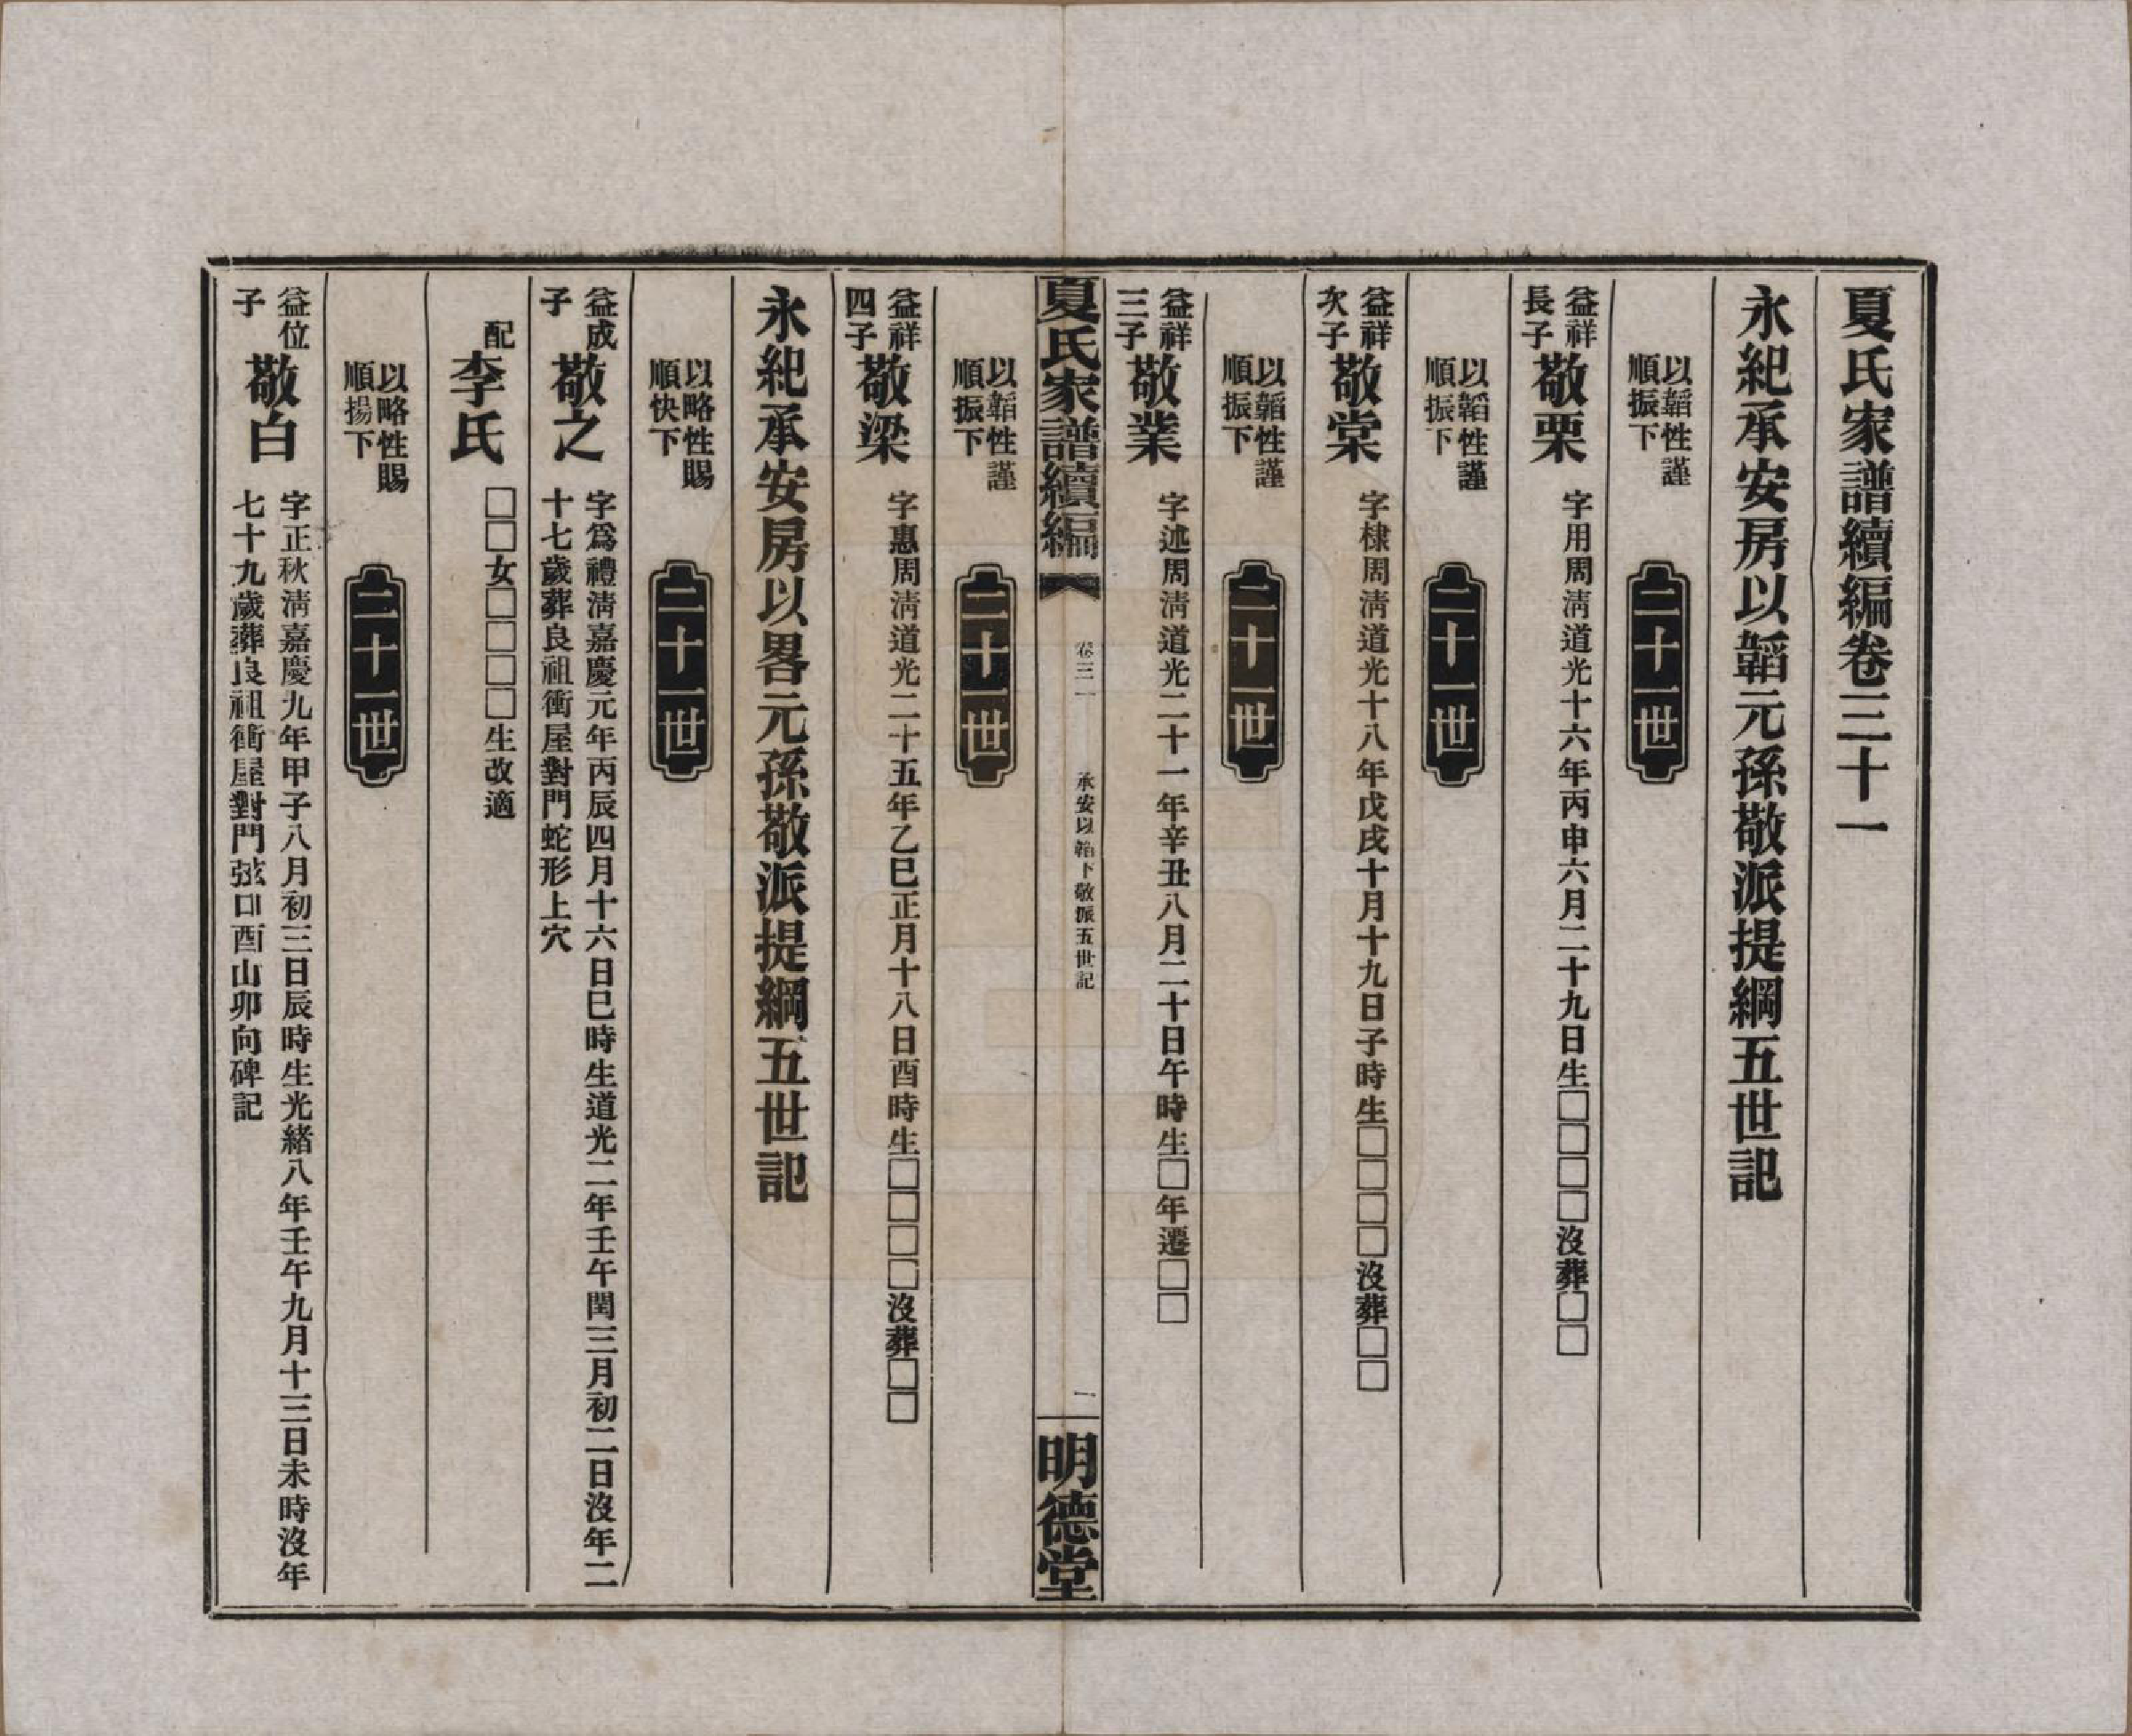 夏氏家譜續編卷三十一
永紀承安房以韜元孫敬派提綱五世記
以韜性謹
順振下
二十一世
益祥
長子
敬栗
字用周淸道光十六年丙申六月二十九日生□□□□沒葬□□
以韜性謹
順振下
二十一世
益祥
次子
敬棠
字棣周淸道光十八年戊戌十月十九日子時生□□□□沒葬□□
以韜性謹
順振下
二十一世
益祥
三子
敬業
字述周淸道光二十一年辛丑八月二十日午時生□年遷□□
夏氏家譜續編
卷三一
承安以韜下敬派五世記
一
明德堂
以韜性謹
順振下
二十一世
益祥
四子
敬梁
字惠周淸道光二十五年乙巳正月十八日酉時生□□□□沒葬□□
永紀承安房以畧元孫敬派提綱五世記
以略性賜
順快下
二十一世
益成
子
敬之
字爲禮淸嘉慶元年丙辰四月十六日巳時生道光二年壬午閏三月初二日沒年二
十七歲葬良祖衝屋對門蛇形上穴
配
李氏
□□女□□□□生改適
以略性賜
順揚下
二十一世
益位
子
敬白
字正秋淸嘉慶九年甲子八月初三日辰時生光緒八年壬午九月十三日未時沒年
七十九歲葬良祖衝屋對門弦口酉山卯向碑記